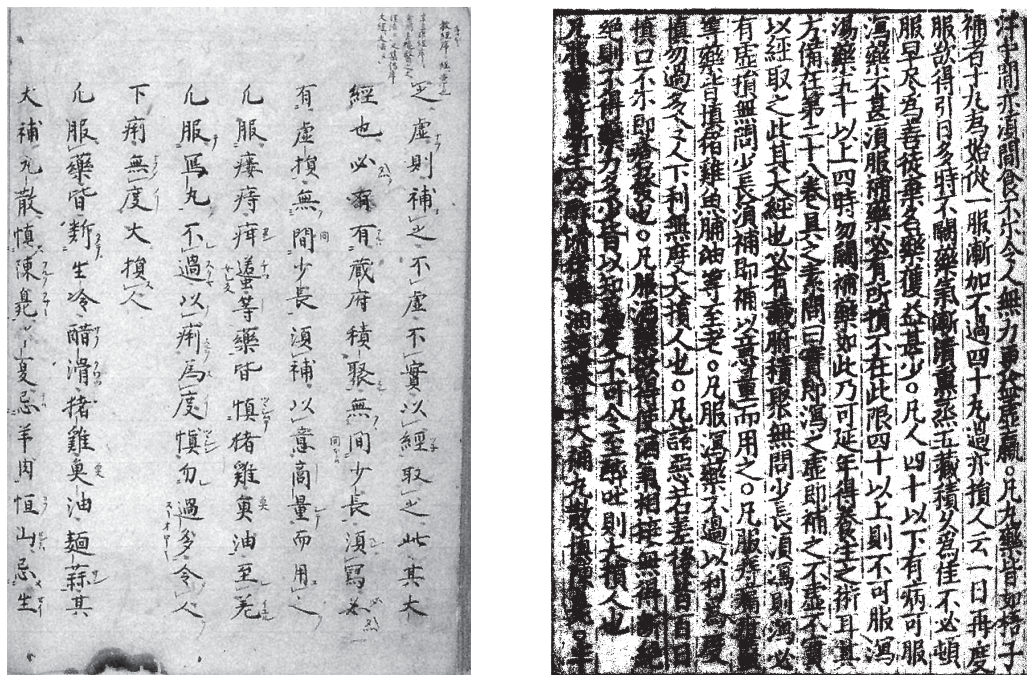 之虛則補之不虛不實以經取之此其大
經也必有有蔵府積聚無問少長湏寫
有虛損無間少長湏補以意商量而用之
凡服瘻痔疳䘌等藥皆慎猪雞魚油至老
凡服寫丸不過以痢為度慎勿過多令人
下痢無度大損人
凡服藥皆断生冷醋滑猪雞魚油麺蒜其
大補丸散慎陳臭忌羊肉恒山忌生
汗中間亦湏間食不尒令人無力更大益虛羸。凡丸藥皆如梧子
補者十丸為始從一服漸加不過四十丸過亦損人云一日再度
服欲得引日多時不闕藥氣漸漬熏蒸五藏積久為佳不必頓
服早尽為善徒棄名藥獲益甚少。凡人四十以下有病可服
瀉藥不甚湏服補藥必有所損不在此限四十以上則不可服瀉
湯藥五十以上四時勿闕補藥如此乃可延年得養生之術耳其
方備在第二十八卷具之素問曰實即瀉之虛即補之不虛不實
以經取之此其大經也必有藏腑積聚無問少長湏瀉則瀉必
有虛損無問少長湏補即補以意量而用之。凡服痔漏疳䘌
等藥皆慎猪雞魚油等至老。凡服瀉藥不過以利為度
慎勿過多令人下利無度大損人也。凡諸惡若差後皆百日
慎口不尒即瘡發也。凡服酒藥欲得使酒氣相接無得断絶
絶則不得藥力多少皆以知為度不可令至醉吐則大損人也
凡服藥皆断生冷酢滑猪雞油麺蒜其大補丸散慎陳臭。羊